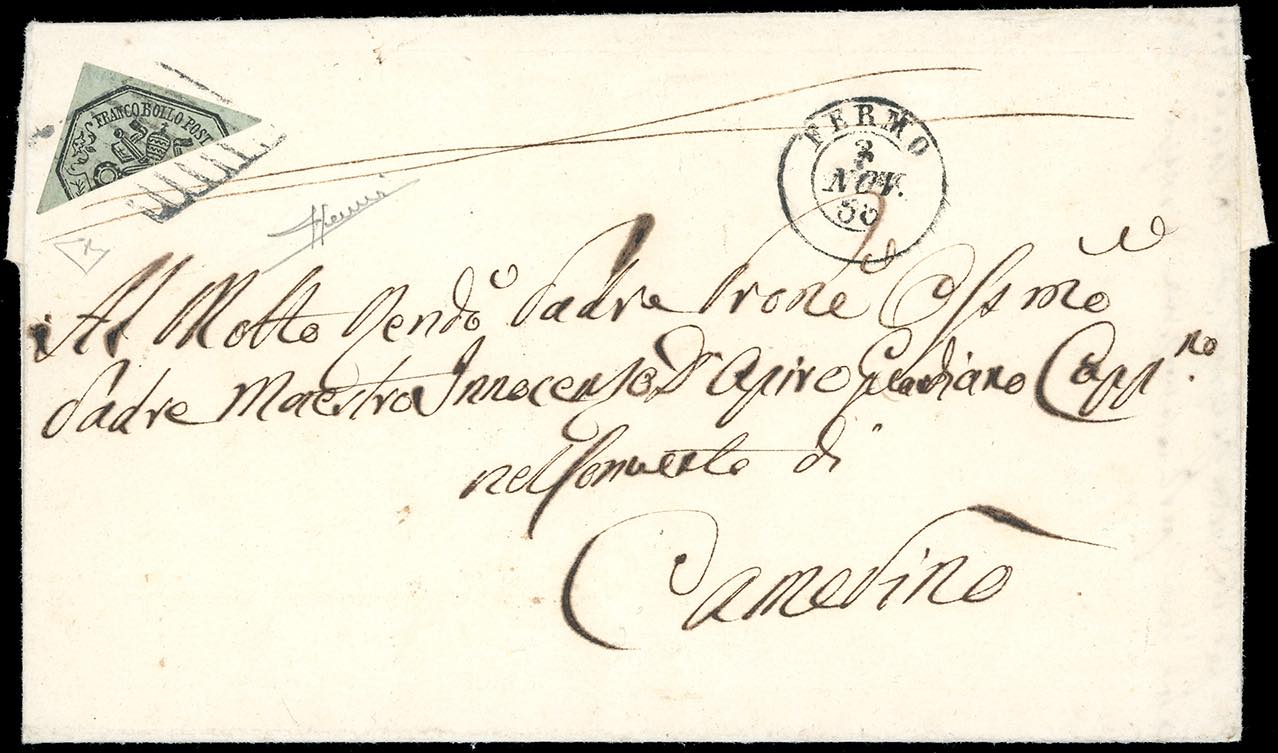 FRANCO BOLLO POST
FERMO
3
NOV.
Al Molto Rendo Padre Prone
Padre Maestro Innocenzo D'Apiro Guardiano Cappno.
nel Convento di
Camerino